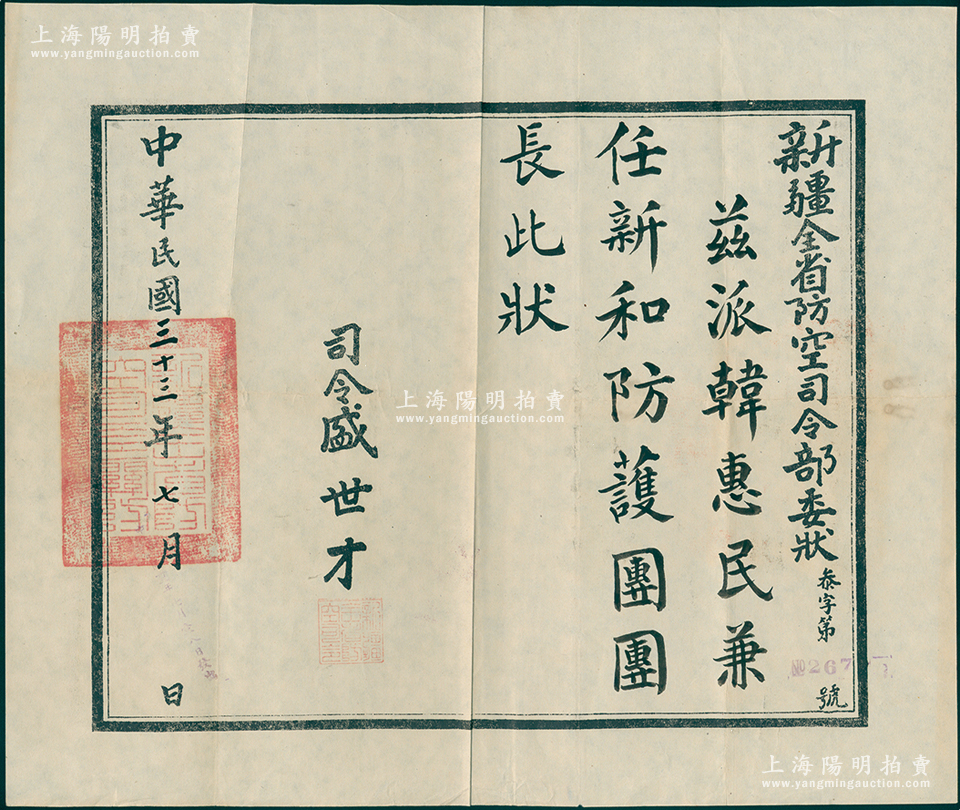 新疆全省防空司令部委狀 叅字第
№267
號
茲派韓惠民兼
任新和防護團團
長此狀
司令盛世才
中華民國三十三年七月 日
上海陽明拍賣
www.yangmingauction.com
上海陽明拍賣
www.yangmingauction.com
上海陽明拍賣
www.yangmingauction.com